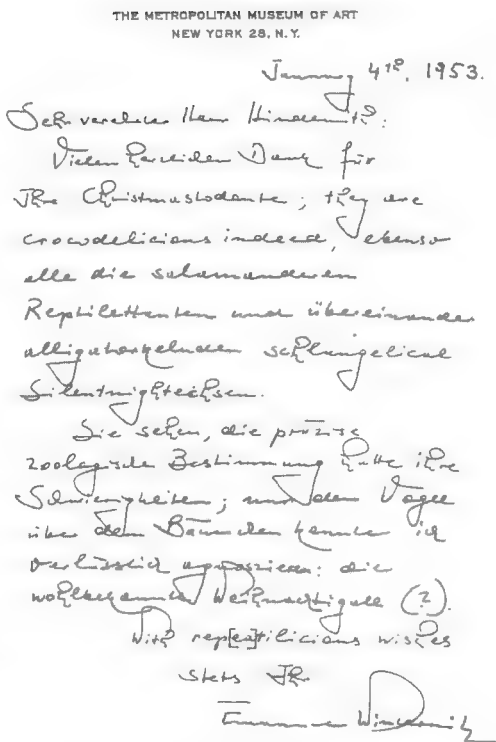 THE METROPOLITAN MUSEUM OF ART
NEW YORK 28, N.Y.
January 4th, 1953.
Sehr verehrter Herr Hindemith:
Vielen herzlichen Dank für
Ihre Christmastodonte; they are
crocodelicious indeed, ebenso
alle die salamanderen
Reptilettanten und übereinander
alligatorkelnden schlangelical
Silentnightechsen.
Sie sehen, die präzise
zoologische Bestimmung hatte ihre
Schwierigkeiten; nur den Vogel
über dem Bäumchen konnte ich
verlässlich agnoszieren: die
wohlbekannte Weihnachtigall (?).
With rep[ea]tilicious wishes
stets Ihr
Emanuel Winternitz